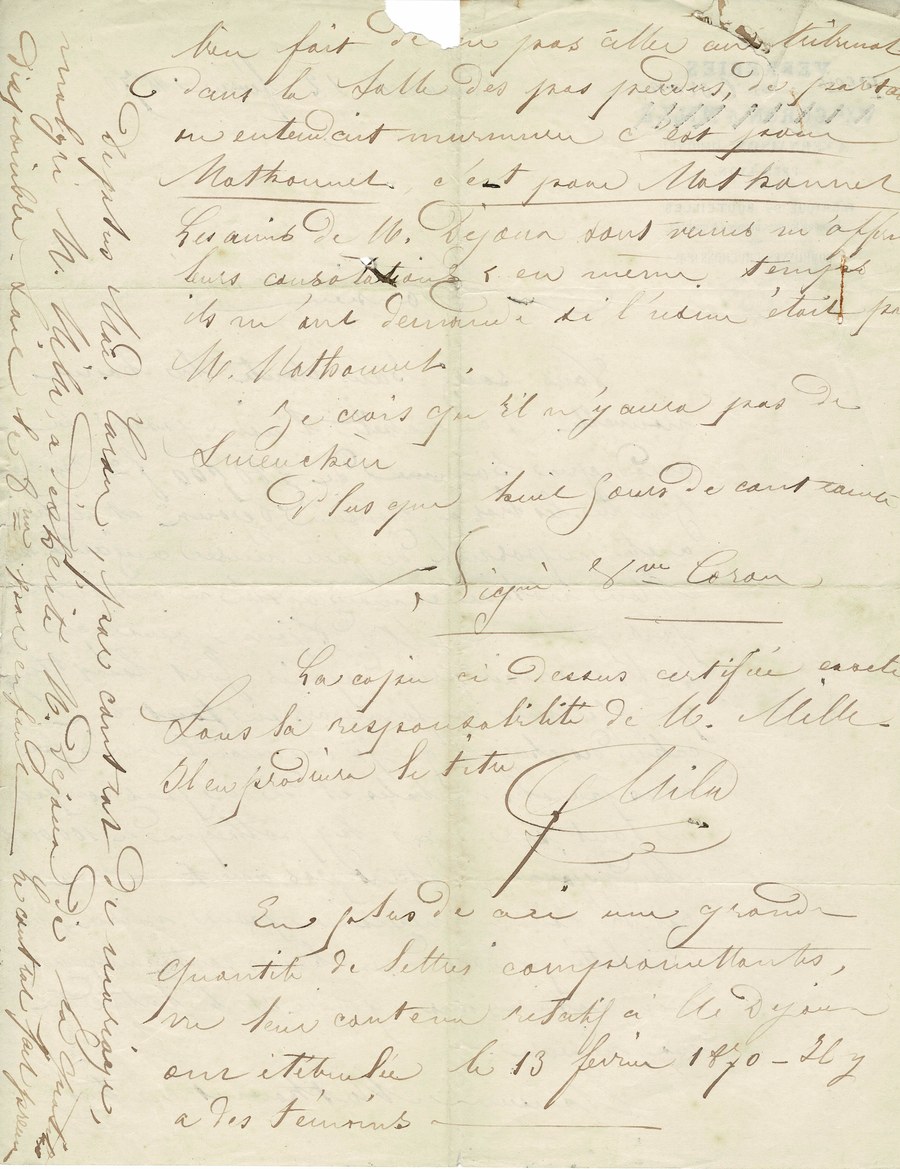 bien fait de ne pas aller au tribunal
dans la Salle des pas perdus, de partout
on entendait murmurer c'est pour
Mathonnet, c'est pour Mathonnet
Les amis de M. Dejoux sont venus m'offrir
leurs consolations & en même temps
ils m'ont demandé si l'usine était pour
M. Mathonnet.
Je crois qu'il n'y aura pas de
Surenchère
Plus que huit Jours de contrainte
Signé Vve Coron
La copie ci dessus certifiée exacte
Sous la responsabilité de M. Mille
Il en produira le titre
Mille
En plus de ceci une grande
quantité de lettres compromettantes,
vu leur contenu relatif à M. Dejoux
ont été brulée le 13 février 1870 - Il y
a des témoins
De plus Mad. Coron, par contrat de mariage,
malgré M. Mille, a déshérité M. Dejoux de la quotité
disponible. Soit le par enfant le contrat fait